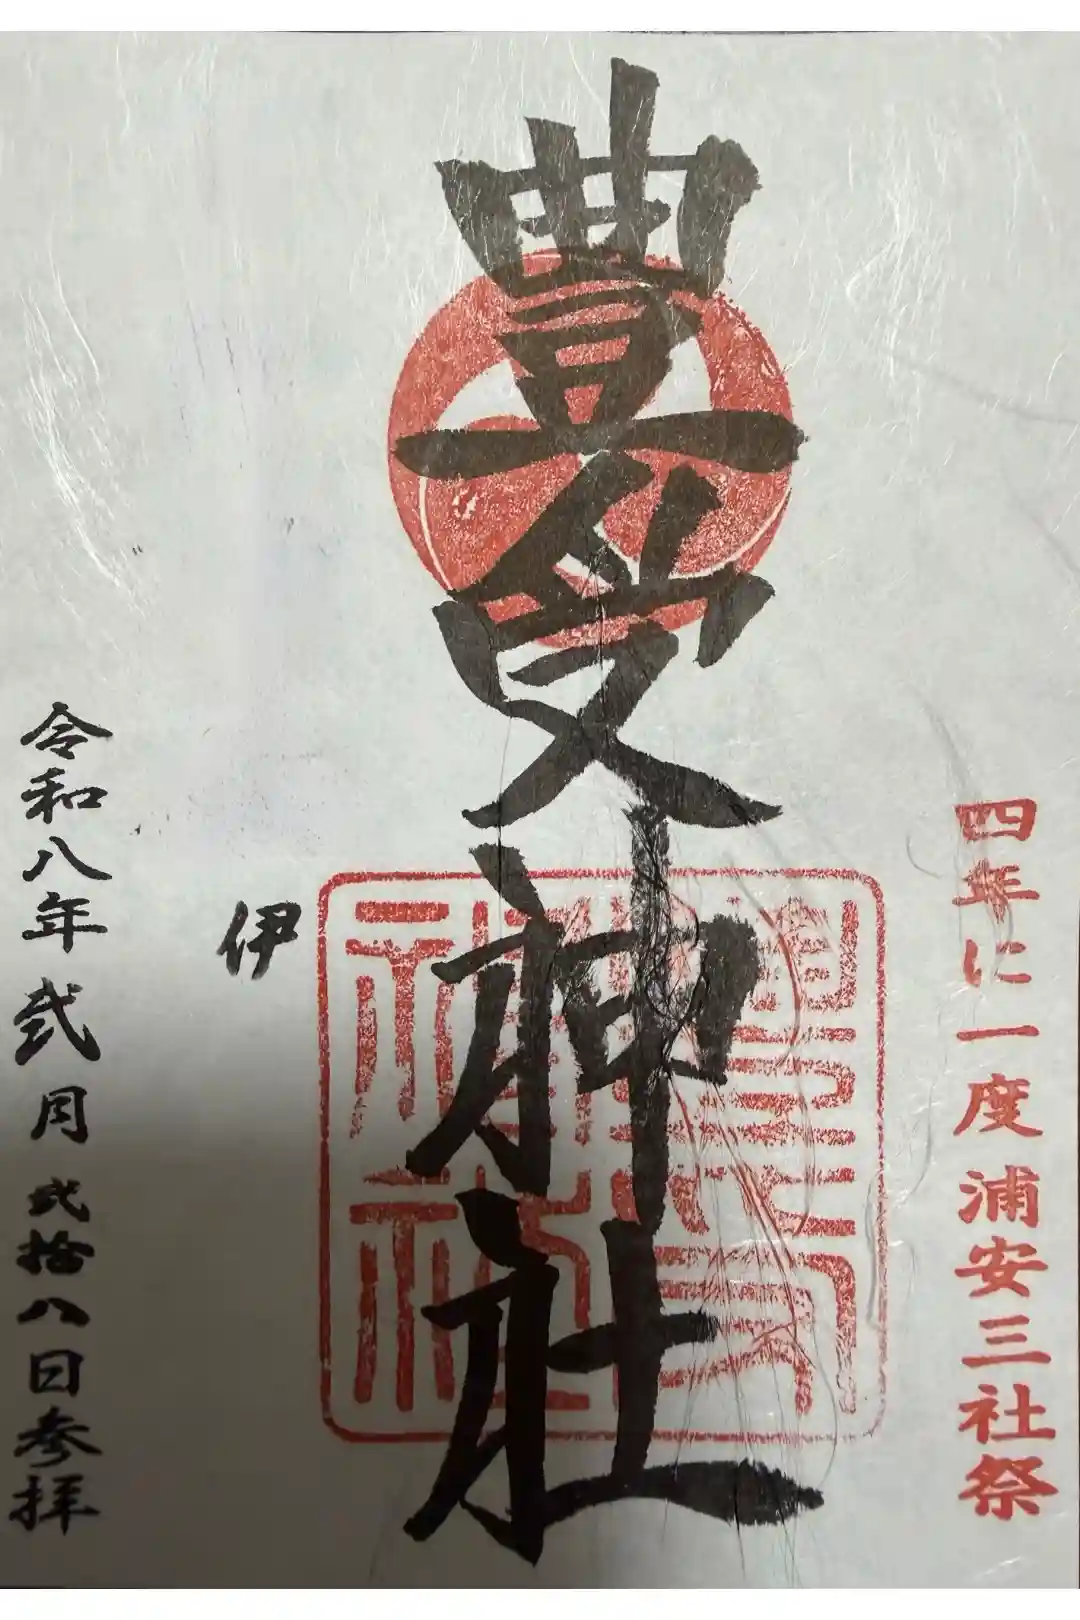 四年に一度浦安三社祭
豊受神社
伊
令和八年弐月弐拾八日参拝